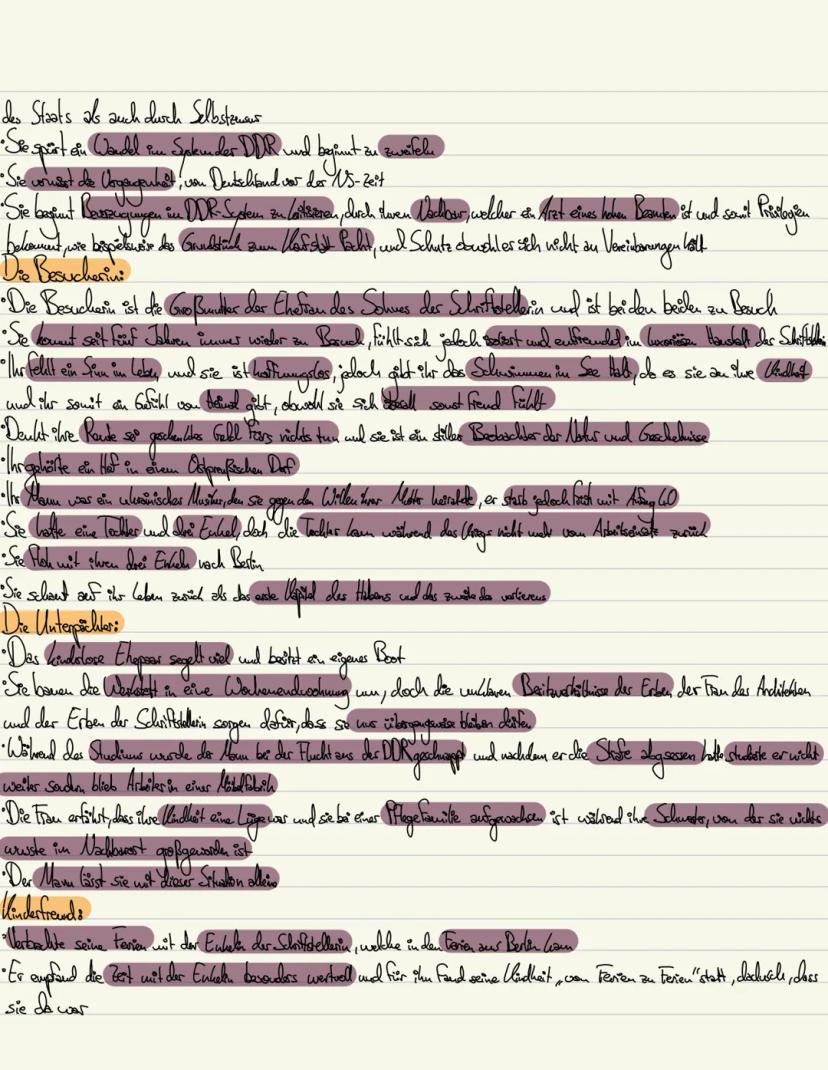 des Staats als auch durch Selbstzensur
·Sie spürt ein Wandel im System der DDR und beginnt zu zweifeln
·Sie vermisst die Vergangenheit, von Deutschland vor der NS-Zeit
·Sie beginnt Bevorzugungen im DDR-System zu kritisieren, durch ihren Nachbar, welcher ein Arzt eines hohen Beamten ist und somit Privilegien
bekommt, wie beispielsweise das Grundstück zum Kauf statt Pacht, und Schutz obwohl es sich nicht an Vereinbarungen hält
Die Besucherin:
·Die Besucherin ist die Großmutter der Ehefrau des Sohnes der Schriftstellerin und ist bei den beiden zu Besuch
·Sie kommt seit fünf Jahren immer wieder zu Besuch, fühlt sich jedoch isoliert und entfremdet im luxuriösen Haushalt der Schriftstellerin
·Ihr fehlt ein Sinn im Leben und sie ist hoffnungslos, jedoch gibt ihr das Schwimmen im See Halt, da es sie an ihre Kindheit
und ihr somit ein Gefühl von Heimat gibt, obwohl sie sich überall sonst fremd fühlt
·Denkt ihre Rente sei geschenktes Geld fürs nichts tun und sie ist ein stiller Beobachter der Natur und Geschehnisse
·Ihr gehörte ein Hof in einem Ostpreußischen Dorf
·Ihr Mann war ein ukrainischer Musiker, den sie gegen den Willen ihrer Mutter heiratete, er starb jedoch früh mit Anfang 60
·Sie hatte eine Tochter und drei Enkel, doch die Tochter kam während des Kriegs nicht mehr vom Arbeitseinsatz zurück
·Sie floh mit ihren drei Enkeln nach Berlin
·Sie schaut auf ihr Leben zurück als das erste Kapitel des Habens und das zweite des verlierens
Die Unterpächter:
·Das kinderlose Ehepaar segelt viel und besitzt ein eigenes Boot
·Sie bauen die Werkstatt in eine Wochenendwohnung um, doch die unklaren Besitzverhältnisse der Erben der Frau des Architekten
und der Erben der Schriftstellerin sorgen dafür, dass sie nur übergangsweise bleiben dürfen
·Während des Studiums wurde der Mann bei der Flucht aus der DDR geschnappt und nachdem er die Strafe abgsessen hatte studierte er nicht
weiter sondern blieb Arbeiter in einer Möbelfabrik
·Die Frau erfährt, dass ihre Kindheit eine Lüge war und sie bei einer Pflegefamilie aufgewachsen ist während ihre Schwester, von der sie nichts
wusste im Nachbarort großgeworden ist
·Der Mann lässt sie mit dieser Situation allein
Kinderfreund:
·Verbrachte seine Ferien mit der Enkelin der Schriftstellerin, welche in den Ferien aus Berlin kam
·Er empfand die Zeit mit der Enkelin besonders wertvoll und für ihn fand seine Kindheit „von Ferien zu Ferien" statt, dadurch, dass
sie da war